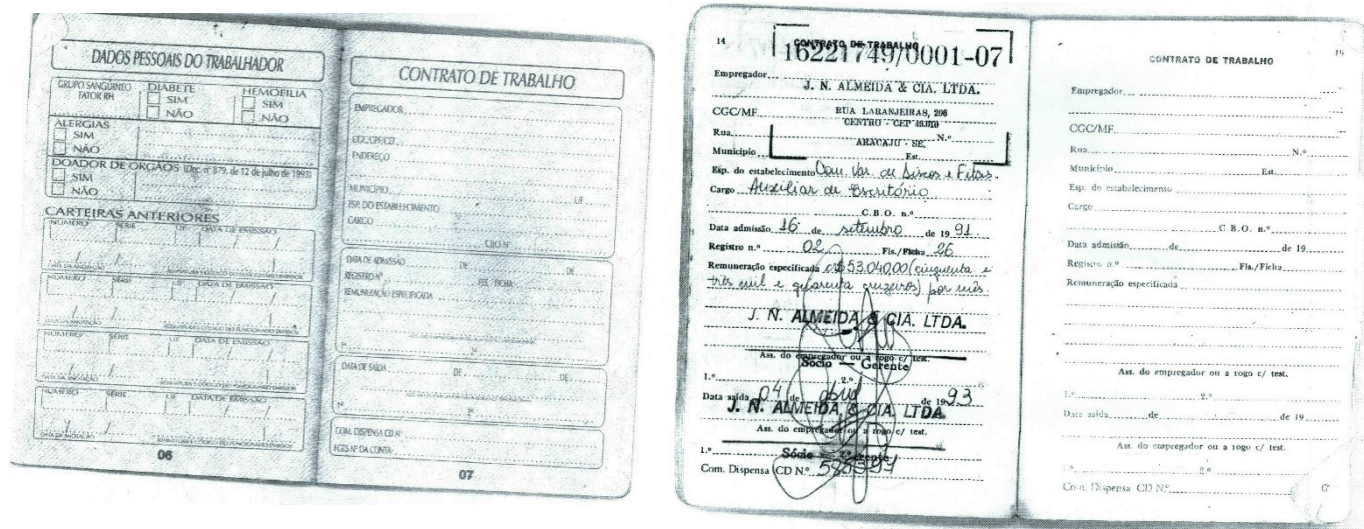 DADOS PESSOAIS DO TRABALHADOR
GRUPO SANGÜINEO
FATOR RH
DIABETE
SIM
NÃO
HEMOFILIA
SIM
NÃO
ALERGIAS
SIM
NÃO
DOADOR DE ORGÃOS (Dec. nº 879, de 12 de julho de 1993)
SIM
NÃO
CARTEIRAS ANTERIORES
NUMERO SÉRIE UF DATA DE EMISSÃO
DATA DA ANOTAÇÃO ASSINATURA E CÓDIGO DO FUNCIONÁRIO EMISSOR
NUMERO SÉRIE UF DATA DE EMISSÃO
DATA DA ANOTAÇÃO ASSINATURA E CÓDIGO DO FUNCIONÁRIO EMISSOR
NUMERO SÉRIE UF DATA DE EMISSÃO
DATA DA ANOTAÇÃO ASSINATURA E CÓDIGO DO FUNCIONÁRIO EMISSOR
NUMERO SÉRIE UF DATA DE EMISSÃO
DATA DA ANOTAÇÃO ASSINATURA E CÓDIGO DO FUNCIONÁRIO EMISSOR
06
CONTRATO DE TRABALHO
EMPREGADOR
CGC/CPF/CEI
ENDEREÇO
MUNICÍPIO UF
ESP. DO ESTABELECIMENTO
CARGO
CBO Nº
DATA DE ADMISSÃO DE DE
REGISTRO Nº FLS. / FICHA
REMUNERAÇÃO ESPECIFICADA
1º 2º
DATA DE SAÍDA DE DE
1º 2º
COM. DISPENSA CD Nº
FGTS Nº DA CONTA
07
14 CONTRATO DE TRABALHO
16221749/0001-07
Empregador
J. N. ALMEIDA & CIA. LTDA.
CGC/MF RUA LARANJEIRAS, 206
CENTRO - CEP
Rua N.º
ARACAJU - SE.
Município Est.
Esp. do estabelecimento Com. Var. de Discos e Fitas.
Cargo Auxiliar de Escritório
C.B.O. n.º
Data admissão 16 de setembro de 19 91
Registro n.º 02 Fls./Ficha 26
Remuneração especificada CR$ 53.040,00 (cinquenta e
três mil e quarenta cruzeiros) por mês.
J. N. ALMEIDA & CIA. LTDA.
Ass. do empregador ou a rogo c/ test.
Sócio — Gerente
1.º 2.º
Data saída 04 de abril de 19 93
J. N. ALMEIDA & CIA. LTDA.
Ass. do empregador ou a rogo c/ test.
1.º Sócio — Gerente 2.º
Com. Dispensa CD N.º
CONTRATO DE TRABALHO
Empregador
CGC/MF
Rua N.º
Município Est.
Esp. do estabelecimento
Cargo
C.B.O. n.º
Data admissão de de 19
Registro n.º Fls./Ficha
Remuneração especificada
Ass. do empregador ou a rogo c/ test.
1.º 2.º
Data saída de de 19
Ass. do empregador ou a rogo c/ test.
1.º 2.º
Com. Dispensa CD N.º